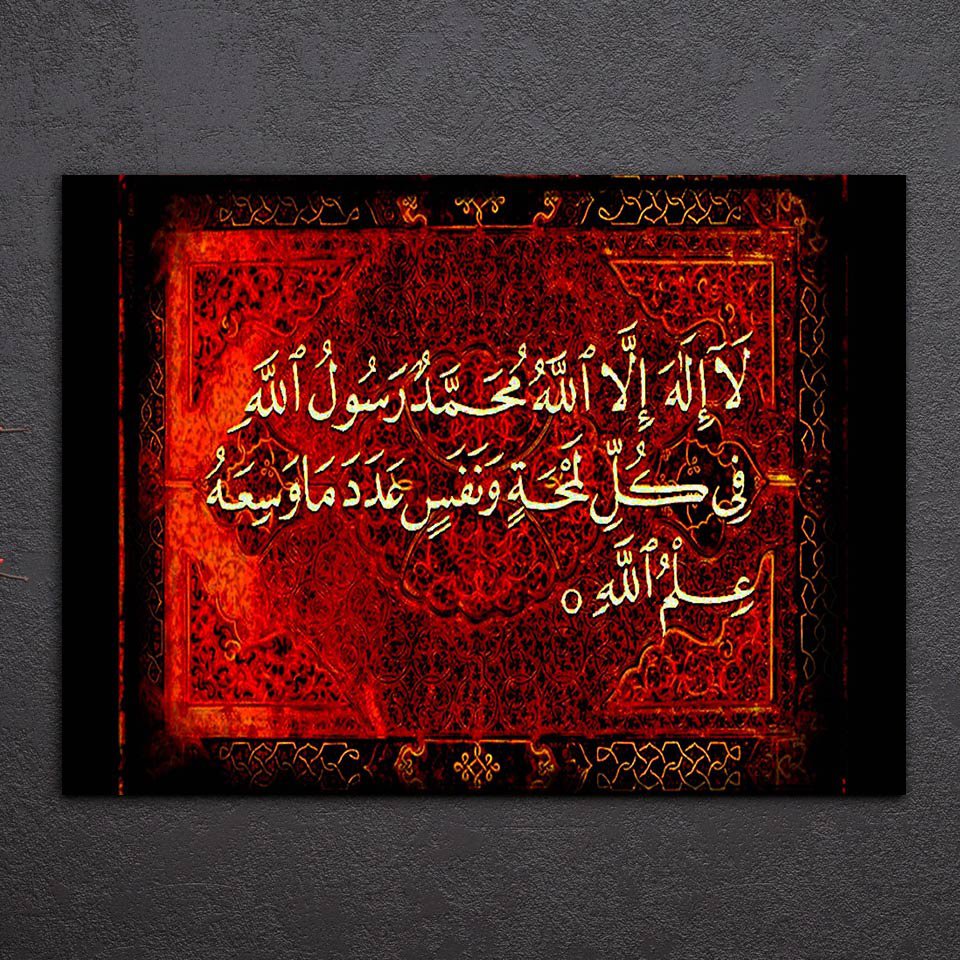 لَآ إِلَٰهَ إِلَّا ٱللَّهُ مُحَمَّدٌ رَسُولُ ٱللَّهِ
فِى كُلِّ لَمْحَةٍ وَنَفَسٍ عَدَدَ مَا وَسِعَهُ
عِلْمُ ٱللَّهِ ○